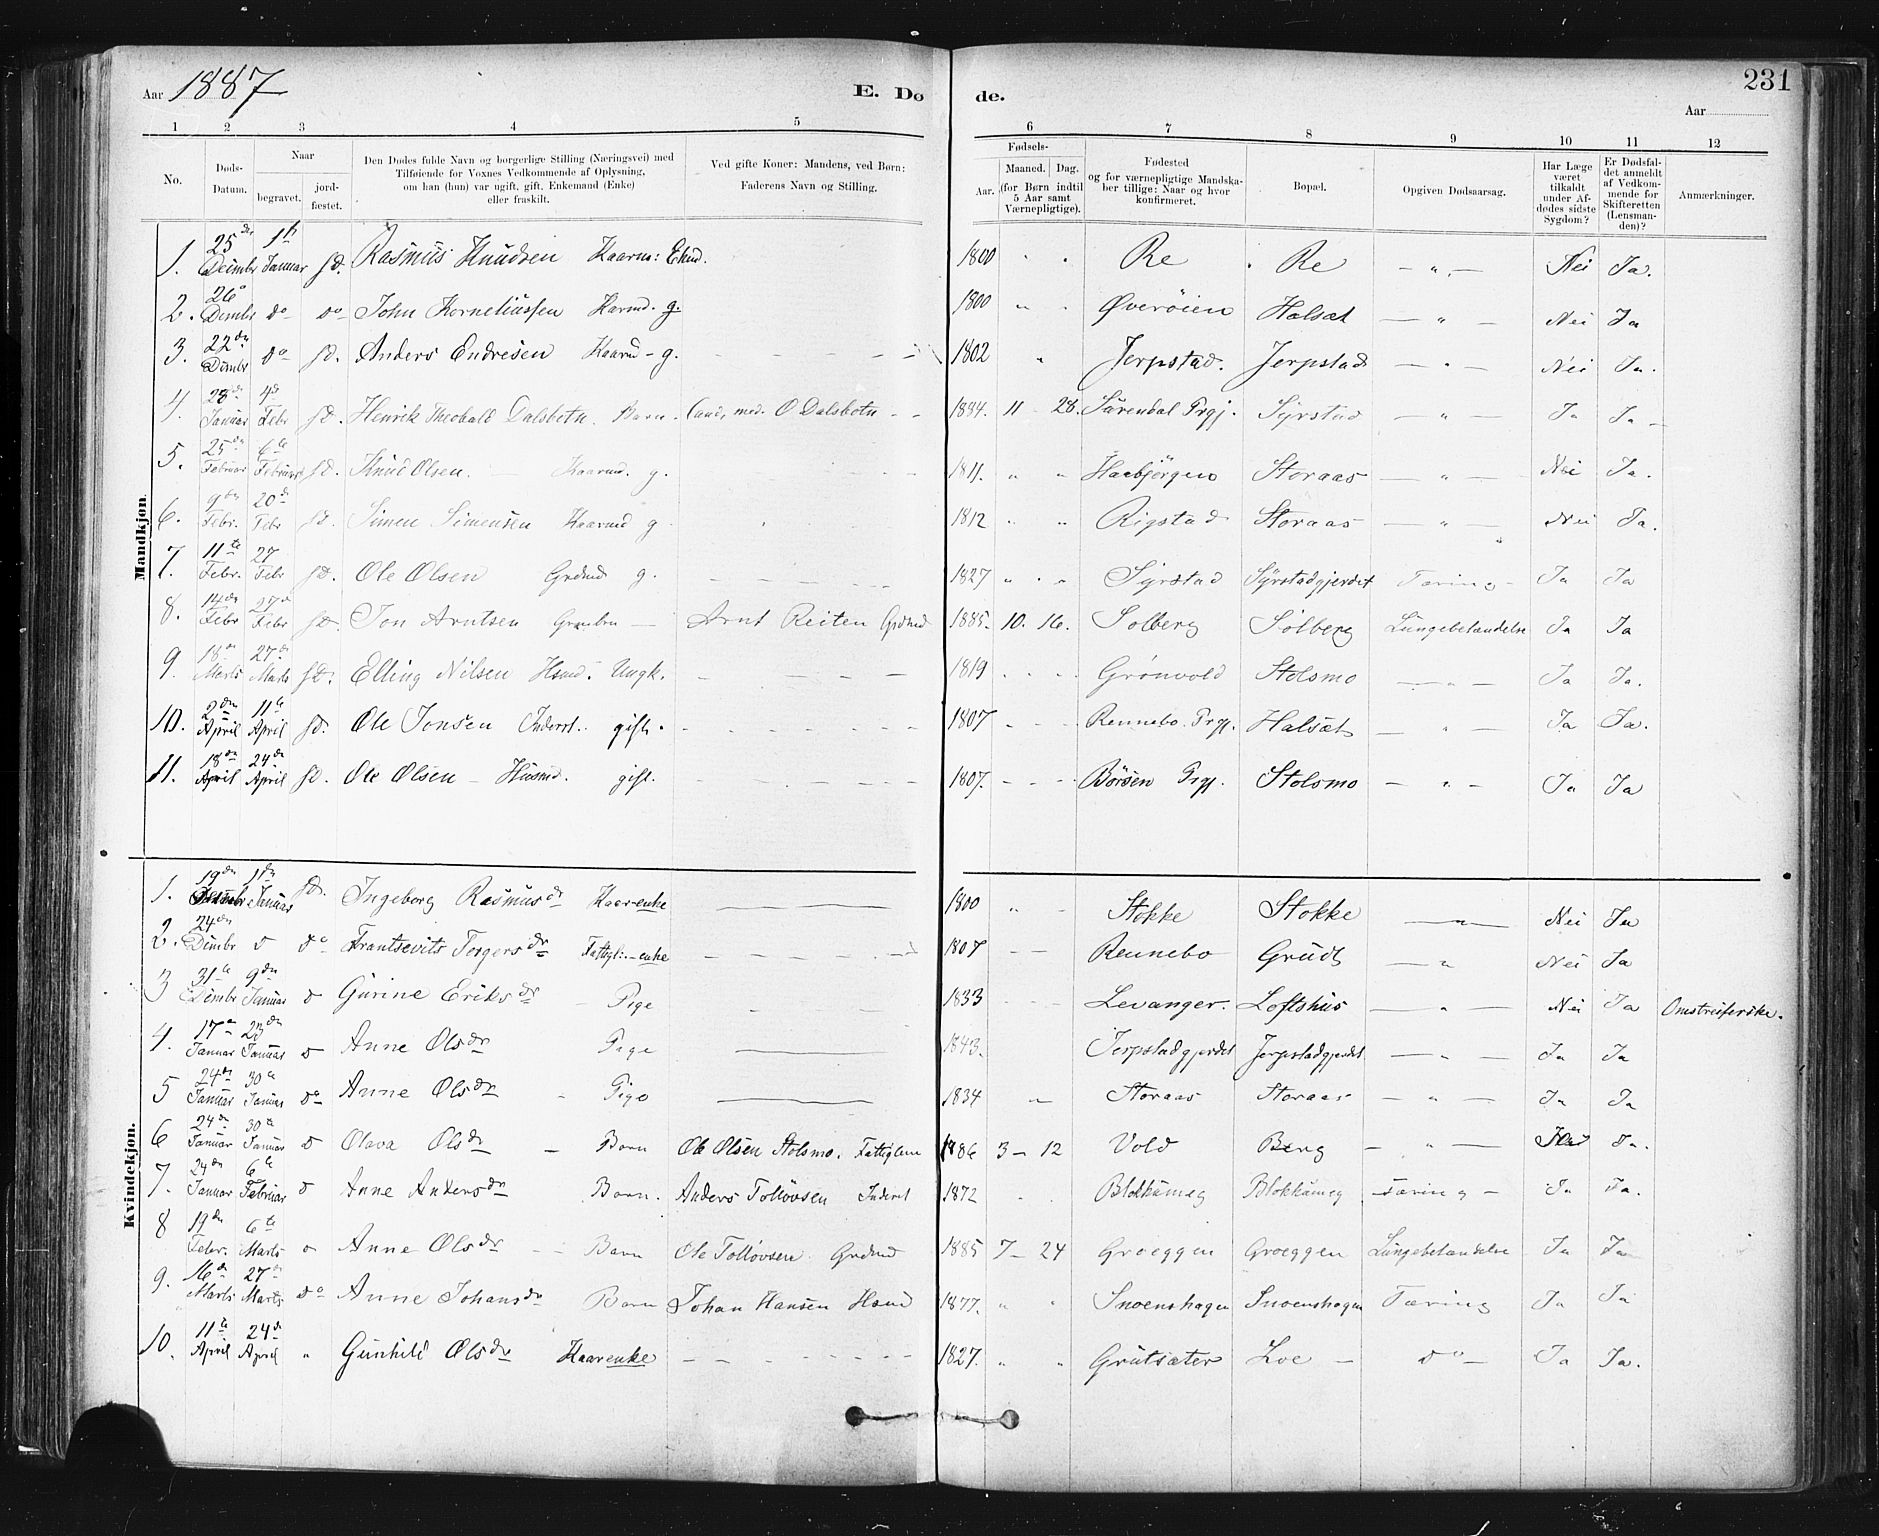 Aar 1887 E. Dø de. 231
Aar
1 2 3 4 5 6 7 8 9 10 11 12
No. Døds-Datum. Naar begravet. jordfæstet. Den Dødes fulde Navn og borgerlige Stilling (Næringsvei) med Tilføiende for Voxnes Vedkommende af Oplysning, om han (hun) var ugift, gift, Enkemand (Enke) eller fraskilt. Ved gifte Koner: Mandens, ved Børn: Faderens Navn og Stilling. Fødsels- Aar. Maaned. Dag. (for Børn indtil 5 Aar samt Værnepligtige). Fødested og for værnepligtige Mandskaber tillige: Naar og hvor konfirmeret. Bopæl. Opgiven Dødsaarsag. Har Læge været tilkaldt under Afdødes sidste Sygdom? Er Dødsfaldet anmeldt af Vedkommende for Skifteretten (Lensmanden)? Anmærkninger.
Mandkjøn.
1. 25 Decmbr 1ste Januar sd. Rasmus Knudsen Kaarm: Ekmd. 1800 Re Re — „ — Nei Ja.
2. 26 Dcmbr do do John Korneliussen Karmd. g. 1800 Øverøien Halsæt — „ — Nei Ja
3. 22de Dcmbr do sd. Anders Endresen Kaarmd – g. 1802 Jerpstad. Jerpstad — „ — Nei Ja.
4. 28de Januar 4de Febr sd. Henrik Theobald Dalsbotn. Barn. Cand. med. O Dalsbotn 1884. 11 28. Surendal Prgj. Syrstad — „ — Ja Ja
5. 25de Februar 6te Februar sd. Knud Olsen. Kaarmd. g. 1811. „ „ Haabjørgen Storaas — „ — Nei Ja.
6. 9de Febr. 20de Febr sd. Simen Simensen Kaarmd g. 1812 „ „ Rigstad Storaas — „ — Nei Ja.
7. 11te Febr. 27 Febr sd. Ole Olsen Grdmd g. 1827 „ „ Syrstad Syrstadgjerdet Tæring – Ja Ja
8. 14de Febr 27de Febr sd. Jon Arntsen Grmbrn — Arnt Reiten Grdmd 1885. 10. 16. Solberg Solberg Lungebetændelse Ja Ja
9. 18de Marts 27de Marts sd. Elling Nilsen Hsmd. Ungk. 1819 Grønvold Stolsmo — „ — Ja Ja.
10. 2den April 11te April sd. Ole Jonsen Inderst. gift. 1807 Rennebo. Prgj. Halsæt — „ — Ja Ja.
11. 18de April 24de April sd. Ole Olsen – Husmd. gift. 1807. Børsen Prgj. Stolsmo — „ — Ja Ja
Kvindekjøn.
1. 19de Decmbr 1ste Januar sd. Ingeborg Rasmusdr Kaarenke 1800 „ Stokke Stokke — „ — Nei Ja
2. 24de Dcmbr d do Frantsevits Torgersdr Fattigl: – enke 1807 Rennebo Grudt — „ Nei Ja
3 31te Dcmbr 9de Januar d Gurine Eriksdr – Pige 1833 Levanger. Loftshus — „ — Nei Ja Omstreiferske.
4. 17de Januar 23de Januar d Anne Olsdr Pige 1843. Jerpstadgjerdet Jerpstadgjerdet — „ — Ja Ja
5 24de Januar 30te Januar do Anne Olsdr – Pige 1834 „ Storaas Storaas — „ — Ja Ja
6 24de Januar 30te Januar d Olava Olsdr – Barn Ole Olsen Stolsmo. Fattiglem 1886 3 – 12 Vold Berg — „ — Ja.
7. 24de Januar 6te Februar d Anne Andersdr Barn. Anders Tolløvsen Inderst 1872 Blokkumeg Blokkumeg Tæring – Ja Ja.
8 19de Febr. 6te Marts d Anne Olsdr – Barn Ole Tolløvsen. Grdmd 1885 7 – 24 Groeggen Groeggen Lungebetændelse Ja Ja
9. 16de Marts 27de Marts do Anne Johansdr Barn Johan Hansen Hsmd 1877. „ „ Snoenshagen Snoenshagen Tæring Ja Ja
10. 11te April 24de April „ Gunhild Olsdr Kaarenke 1827. „ „ Grutsæter Loe – do – Ja Ja.